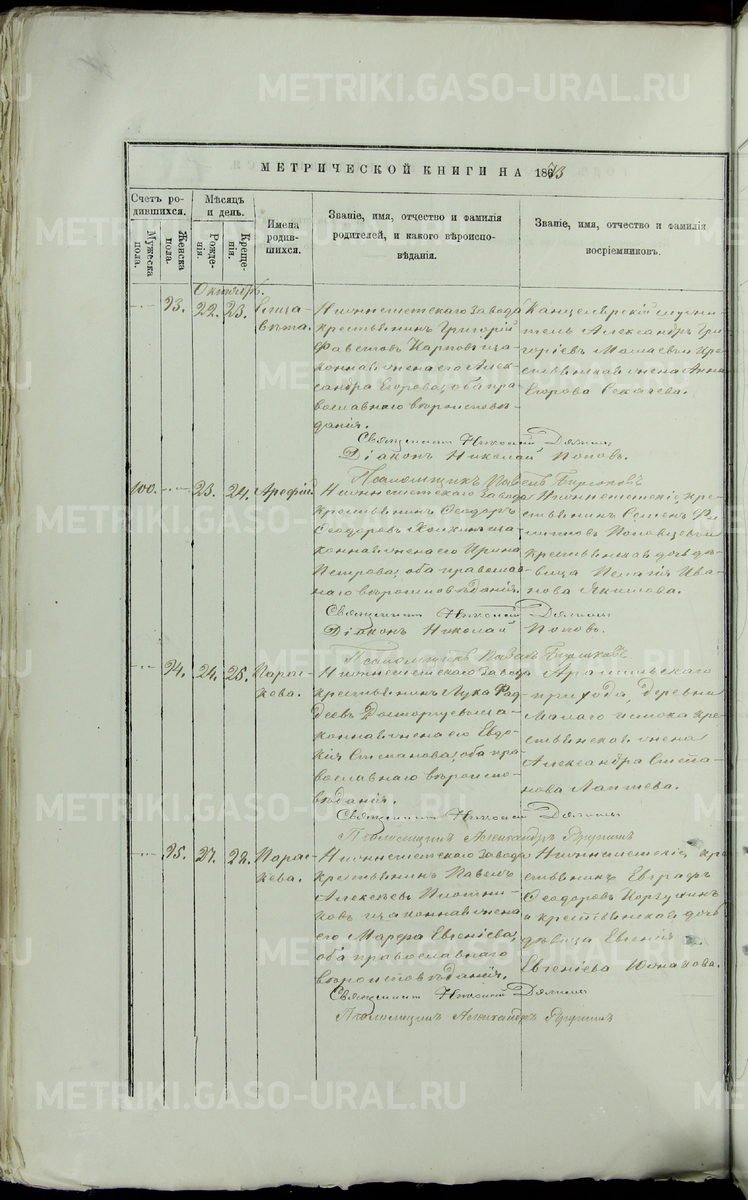 METRIKI.GASO-URAL.RU
МЕТРИЧЕСКОЙ КНИГИ НА 1873
Счетъ родившихся.
Мужеска пола.
Женска пола.
Мѣсяцъ и день.
Рожденія.
Крещенія.
Имена родившихся.
Званіе, имя, отчество и фамилія родителей, и какого вѣроисповѣданія.
Званіе, имя, отчество и фамилія воспріемниковъ.
Октябрь.
93. 22. 23. Елизавета.
Нижнеисетскаго завода
крестьянинъ Григорій
Карповъ и за-
конная жена его Алек-
сандра Егорова, оба пра-
вославнаго вѣроисповѣ-
данія.
Канцелярскій служи-
тель Александръ Гри-
горіевъ и кре-
стьянская жена Анна
Егорова
Священникъ Николай
Діаконъ Николай Поповъ.
Псаломщикъ Павелъ
100. 23. 24. Арефій
Нижнеисетскаго завода
крестьянинъ Ѳеодоръ
Ѳеодоровъ и за-
конная жена его Ирина
Петрова, оба православ-
наго вѣроисповѣданія.
Нижнеисетскіе кре-
стьянинъ Семенъ Фи-
липповъ и
крестьянская дочь дѣ-
вица Пелагія Ива-
нова Якимова.
Священникъ Николай
Діаконъ Николай Поповъ.
Псаломщикъ Павелъ
94. 24. 25. Парас-
кева.
Нижнеисетскаго завода
крестьянинъ Лука Фад-
деевъ и за-
конная жена его Евдо-
кія Степанова, оба пра-
вославнаго вѣроиспо-
вѣданія.
Арамильскаго
прихода, деревни
Малаго Истока кре-
стьянская жена
Александра Степа-
нова Лаптева.
Священникъ Николай
Псаломщикъ Александръ
95. 27. 28. Парас-
кева.
Нижнеисетскаго завода
крестьянинъ Павелъ
Алексѣевъ Плотни-
ковъ и законная жена
его Евгеніева,
оба православнаго
вѣроисповѣданія.
Нижнеисетскіе кре-
стьянинъ Евграфъ
Ѳеодоровъ
и крестьянская дочь
дѣвица Евгенія
Евгеніева
Священникъ Николай
Псаломщикъ Александръ